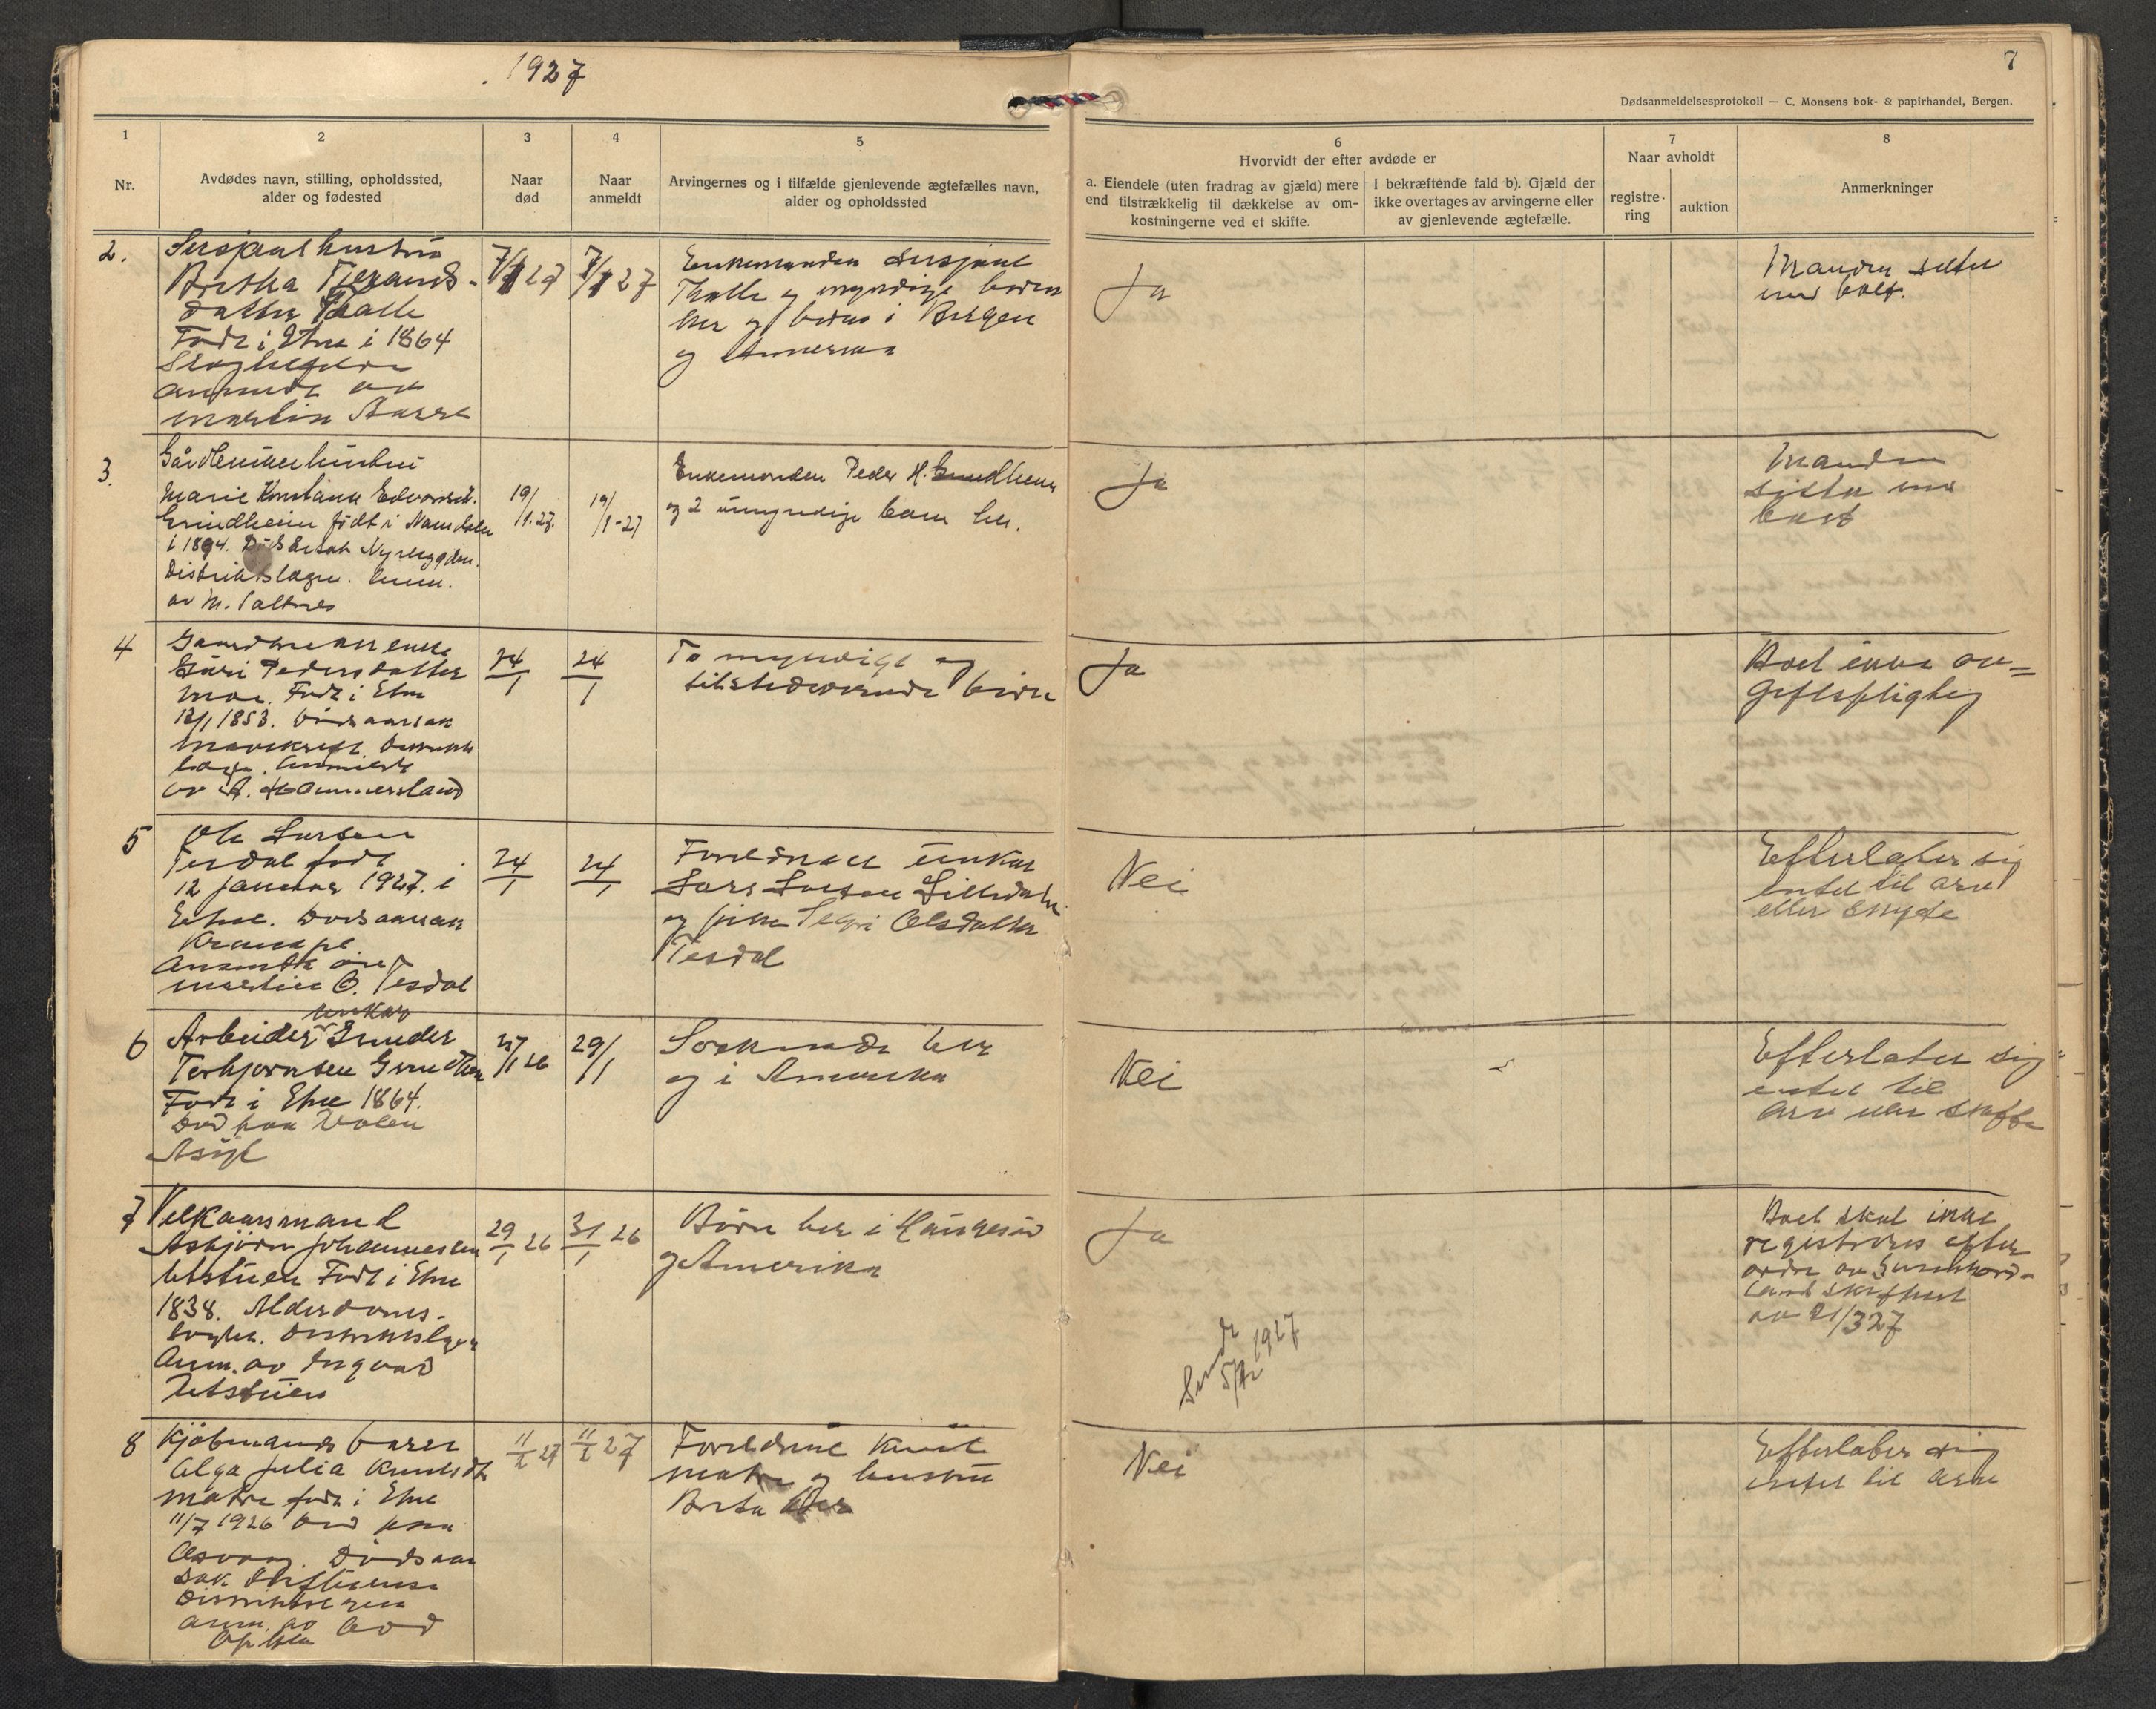 1927
7
Dødsanmeldelsesprotokoll — C. Monsens bok- & papirhandel, Bergen.
1
Nr.
2
Avdødes navn, stilling, opholdssted,
alder og fødested
3
Naar
død
4
Naar
anmeldt
5
Arvingernes og i tilfælde gjenlevende ægtefælles navn,
alder og opholdssted
6
Hvorvidt der efter avdøde er
a. Eiendele (uten fradrag av gjæld) mere
end tilstrækkelig til dækkelse av om-
kostningerne ved et skifte.
I bekræftende fald b). Gjæld der
ikke overtages av arvingerne eller
av gjenlevende ægtefælle.
7
Naar avholdt
registre-
ring
auktion
8
Anmerkninger
2.
Sersjant hustru
Bertha
datter
Født i Etne i 1864
anmeldt av
Martin
7/1 27
7/1 27
Enkemanden sersjant
og myndige børn
her og børn i Bergen
og Amerika
Ja
Manden sitter
med boet.
3.
Gårdbrukerhustru
Marie Konstanse
Grindheim født i Namdalen
i 1894.
Distriktslægen. Anm.
av M. Saltnes
19/1. 27.
19/1-27
Enkemanden Peder H. Grindheim
og 2 umyndige barn her.
Ja
Manden
sitter med
boet
4
Gaardbrukerenke
Guri Pedersdatter
Moe. Født i Etne
12/1 1853. Dødsaarsak
læge. Anmeldt
av A. Hammersland
24/1
24/1
To myndige og
tilstedeværende børn
Ja
Boet ikke av-
giftspligtig
5
Ole Larsen
Tesdal født
12 januar 1927. i
Etne. Dødsaarsak
Krampe.
Anmeldt av
Martin O. Tesdal
24/1
24/1
Foreldrene ungkar
Lars Larsen
og pike Olsdatter
Tesdal
Nei
Efterlater sig
intet til arv
eller skifte
6
ungkar
Arbeider
Torbjørnsen Grindheim
Født i Etne 1864.
Død paa Valen
Asyl
1 26
29/1
Søskende her
og i Amerika
Nei
Efterlater sig
intet til
arv eller skifte
7
Velkaarsmand
Asbjørn Johannessen
Utstuen Født i Etne
1838. Alderdoms-
Distriktslægen
Anm. av Ingvald
Utstuen
29/1 26
31/1 26
Børn her i Haugesund
og Amerika
Ja
Sendt
1927
Boet skal ikke
registreres efter
ordre av Sunnhord-
land skifteret
av 21/3 27
8
Kjøbmands barn
Olga Julia Knutsdtr
Matre født i Etne
11/7 1926 død paa
Dødsaar
sak
Distriktslægen
anm. av
11/2 27
11/2 27
Foreldrene Knut
Matre og hustru
Berta
Nei
Efterlater sig
intet til arv